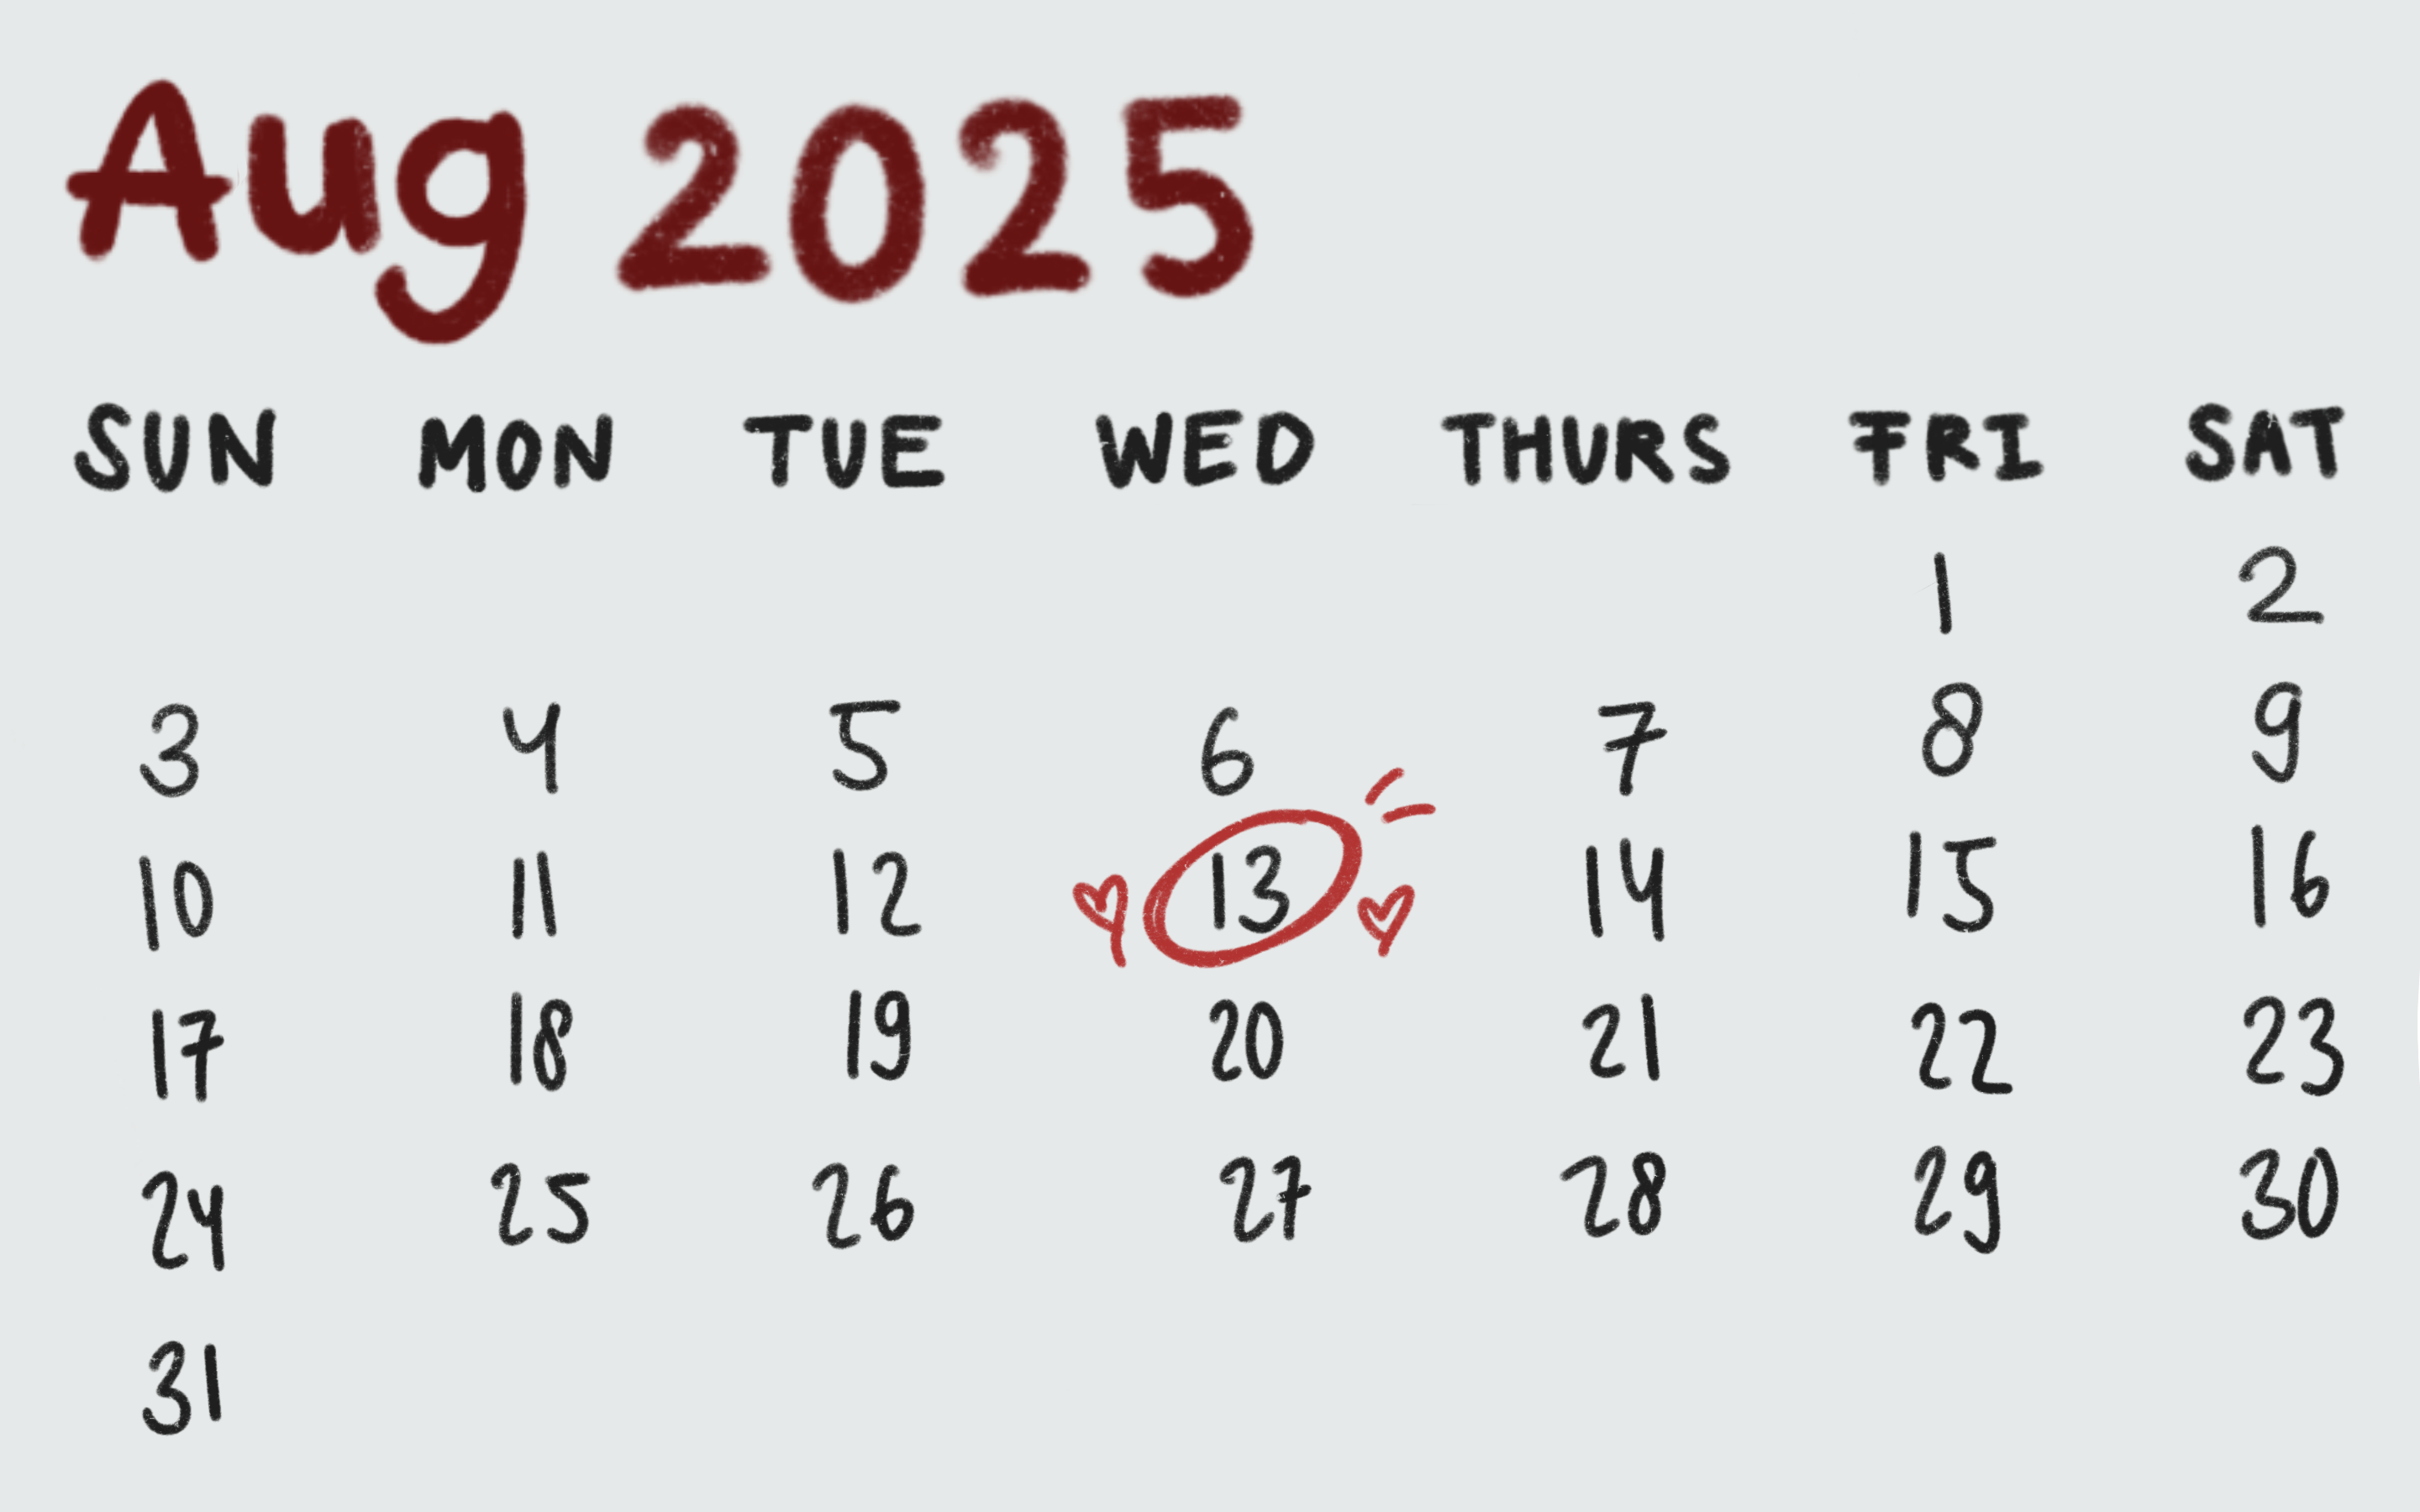 Aug 2025
SUN MON TUE WED THURS FRI SAT
1 2
3 4 5 6 7 8 9
10 11 12 13 14 15 16
17 18 19 20 21 22 23
24 25 26 27 28 29 30
31